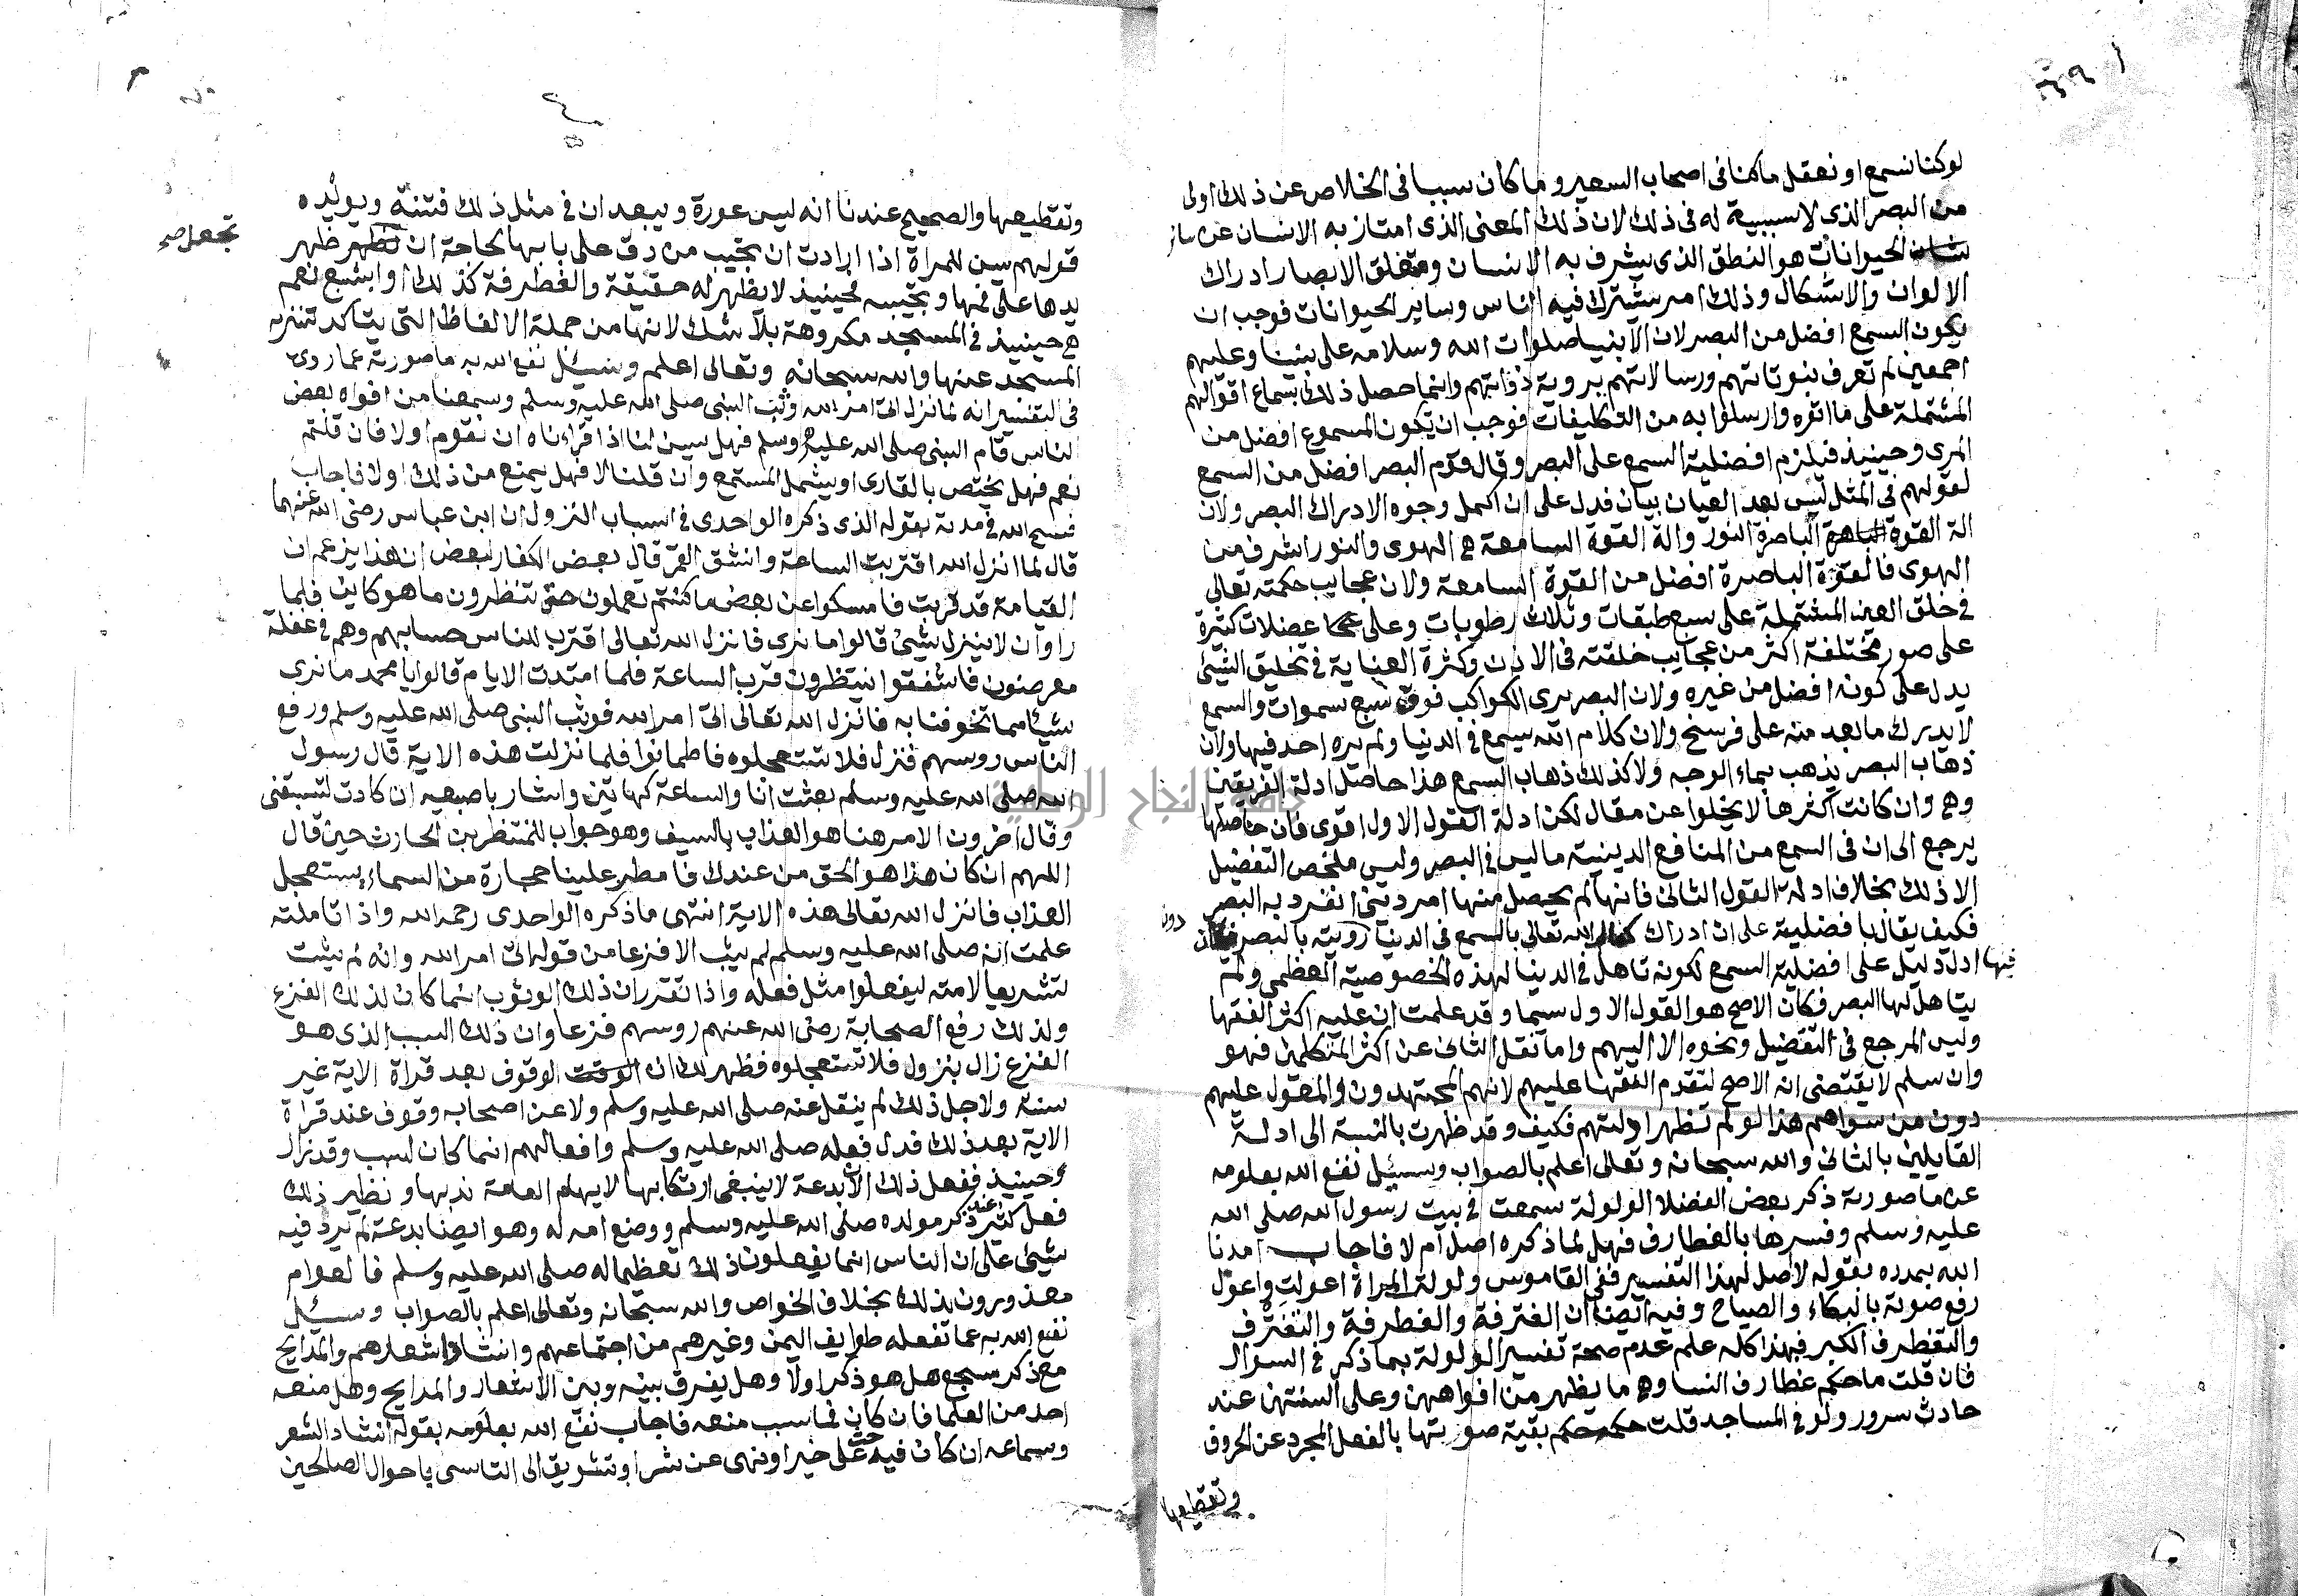 لو كنا نسمع او نعقل ما كنا فى اصحاب السعير وما كان سببا فى الخلاص عن ذلك اولى
من البصر الذى لا سببية له فى ذلك لان ذلك المعنى الذى امتاز به الانسان عن سائر
الحيوانات هو النطق الذى يشرف به الانسان ومتعلق الابصار ادراك
الالوان والاشكال وذلك امر يشترك فيه الناس وساير الحيوانات فوجب ان
يكون السمع افضل من البصر لان الانبيا صلوات الله وسلامه على نبينا وعليهم
اجمعين لم تعرف نبوتاتهم ورسالاتهم بروية ذواتهم وانما حصل ذلك بسماع اقوالهم
المشتملة على ما اتره وارسلوا به من التكليفات فوجب ان يكون المسموع افضل من
المرى وحينيذ فيلزم افضلية السمع على البصر وقال قوم البصر افضل من السمع
لقولهم فى المثل ليس بعد العيان بيان فدل على ان اكمل وجوه الادراك البصر ولان
الة القوة الباصرة النور والة القوة السامعة هى الهوى والنور اشرف من
الهوى فالقوة الباصرة افضل من القوة السامعة ولان عجايب حكمته تعالى
فى خلق العين المشتملة على سبع طبقات وثلاث رطوبات وعلى عضلات كثيرة
على صور مختلفة اكثر من عجايب خلقته فى الاذن وكثرة العناية فى تخليق الشيئ
يدل على كونه افضل من غيره ولان البصر يرى الكواكب فوق سبع سموات والسمع
لا يدرك ما بعد منه على فرسخ ولان كلام الله سمع فى الدنيا ولم يره احد فيها ولان
ذهاب البصر يذهب بماء الوجه ولا كذلك ذهاب السمع هذا حاصل ادلة الفريقين
وهى وان كانت اكثرها لا يخلوا عن مقال لكن ادلة القول الاول اقوى فان حاصلها
يرجع الى ان فى السمع من المنافع الدينية ما ليس فى البصر وليس ملخص التفضيل
الا ذلك بخلاف ادلة القول الثانى فانها لم يحصل منها امر دينى انفرد به البصر
فكيف يقال بافضليته على ان ادراك كلام الله تعالى بالسمع فى الدنيا دون رويته بالبصر
فيها ادل دليل على افضلية السمع لكونه تاهل فى الدنيا لهذه الخصوصية العظمى ولم
يتاهل لها البصر فكان الاصح هو القول الاول سيما وقد علمت ان عليه اكثر الفقها
وليس المرجع فى التفضيل ونحوه الا اليهم وما نقل الثانى عن اكثر المتكلمين فهو
وان سلم لا يقتضى انه الاصح لتقدم الفقها عليهم لانهم المجتهدون والمعول عليهم
دون من سواهم هذا لو لم تظهر ادلتهم فكيف وقد ظهرت بالنسبة الى ادلة
القايلين بالثانى والله سبحانه وتعالى اعلم بالصواب وسيئل نفع الله بعلومه
عن ما صورته ذكر بعض الفضلا الولولة سمعت فى بيت رسول الله صلى الله
عليه وسلم وفسرها بالغطارف فهل لما ذكره اصل ام لا فاجاب امدنا
الله بمدده بقوله لا اصل لهذا التفسير ففى القاموس ولولة المراة اعولت واعول
رفع صوته بالبكاء والصياح وفيه ايضا ان الغترفة والغطرفة والتغترف
والتغطرف الكبر فبهذا كله علم عدم صحة تفسير الولولة بما ذكر فى السوال
فان قلت ما حكم غطارف النسا وهى ما يظهر من افواههن وعلى السنتهن عند
حادث سرور ولو فى المساجد قلت حكم بقية صورتها بالفعل المجرد عن الحروف
وتقطيعها
وتقطيعها والصحيح عندنا انه ليس عورة ويبعد ان فى مثل ذلك فتنة ويويده
قولهم سن للمراة اذا ارادت ان تجيب من دق على بابها لحاجة ان تجعل ظهر
تجعل صح
يدها على فمها وتجيبه فحينيذ لا يظهر له حقيقة والغطرفة كذلك او ابشع نعم
هى حينيذ فى المسجد مكروهة بلا شك لانها من جملة الالفاظ التى يتاكد تنزيه
المسجد عنها والله سبحانه وتعالى اعلم وسيئل نفع الله به ما صورته عما روى
فى التفسير انه لما نزل اتى امر الله وثب النبى صلى الله عليه وسلم وسمعنا من افواه بعض
الناس قام النبى صلى الله عليه وسلم فهل يسن لنا اذا قراناه ان نقوم او لا فان قلتم
نعم فهل يختص بالقارى او يشمل المستمع وان قلنا لا فهل يمنع من ذلك اولا فاجاب
فسح الله فى مدته بقوله الذى ذكره الواحدى فى اسباب النزول ان ابن عباس رضى الله عنهما
قال لما انزل الله اقتربت الساعة وانشق القمر قال بعض الكفار لبعض ان هذا يزعم ان
القيامة قد قربت فامسكوا عن بعض ما كنتم تعملون حتى تنظرون ما هو كاين فلما
راوا ان لا ينزل شيئ قالوا ما نرى فانزل الله تعالى اقترب للناس حسابهم وهم فى غفلة
معرضون فاشفقوا ينتظرون قرب الساعة فلما امتدت الايام قالوا يا محمد ما نرى
شيئا مما تخوفنا به فانزل الله تعالى اتى امر الله فوثب النبى صلى الله عليه وسلم ورفع
الناس روسهم فنزل فلا تستعجلوه فاطمانوا فلما نزلت هذه الاية قال رسول
الله صلى الله عليه وسلم بعثت انا والساعة كهاتين واشار باصبعيه ان كادت لتسبقنى
وقال اخرون الامر هنا هو العذاب بالسيف وهو جواب للنضر بن الحارث حين قال
اللهم ان كان هذا هو الحق من عندك فامطر علينا حجارة من السماء يستعجل
العذاب فانزل الله تعالى هذه الاية انتهى ما ذكره الواحدى رحمه الله واذا تاملته
علمت انه صلى الله عليه وسلم لم يثب الا فزعا من قوله اتى امر الله وانه لم يثبت
تشريعا لامته ليفعلوا مثل فعله واذا تقرر ان ذلك الوثوب انما كان لذلك الفزع
ولذلك رفع الصحابة رضى الله عنهم روسهم فزعا وان ذلك السبب الذى هو
الفزع زال بنزول فلا تستعجلوه فظهر لك ان الوقوف بعد قراة الاية غير
سنة ولاجل ذلك لم ينقل عنه صلى الله عليه وسلم ولا عن اصحابه وقوف عند قراة
الاية بعد ذلك فدل فعله صلى الله عليه وسلم وافعالهم انما كان لسبب وقد زال
وحينيذ ففعل ذلك الان بدعة لا ينبغى ارتكابها لايهام العامة ندبها ونظير ذلك
فعل كثير عند ذكر مولده صلى الله عليه وسلم ووضع امه له وهو ايضا بدعة لم يرد فيه
شيئ على ان الناس انما يفعلون ذلك تعظيما له صلى الله عليه وسلم فالعوام
معذورون بذلك بخلاف الخواص والله سبحانه وتعالى اعلم بالصواب وسيئل
نفع الله به عما تفعله طوايف اليمن وغيرهم من اجتماعهم وانشاد اشعارهم والمدايح
مع ذكر مسجع هل هو ذكر اولا وهل يفرق بينه وبين الاشعار والمدايح وهل منعه
احد من العلما فان كان فما سبب منعه فاجاب نفع الله بعلومه بقوله انشاد الشعر
وسماعه ان كان فيه حث على خير او نهى عن شر او تشويق الى التاسى باحوال الصالحين
جامعة النجاح الوطنية